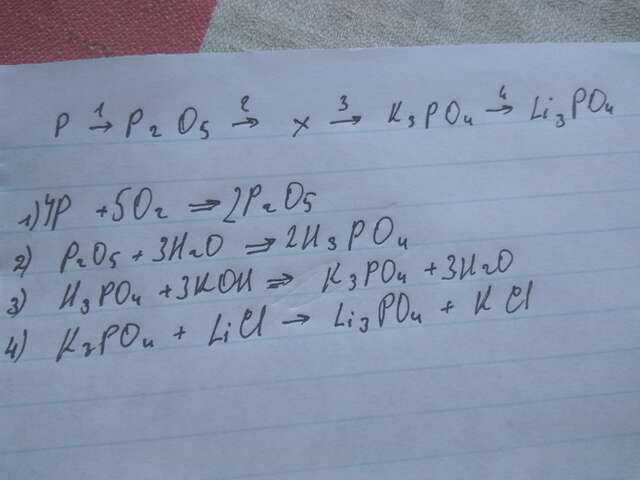 P 1→ P₂O₅ 2→ x 3→ K₃PO₄ 4→ Li₃PO₄
1) 4P + 5O₂ ⇒ 2P₂O₅
2) P₂O₅ + 3H₂O ⇒ 2H₃PO₄
3) H₃PO₄ + 3KOH ⇒ K₃PO₄ + 3H₂O
4) K₃PO₄ + LiCl → Li₃PO₄ + KCl